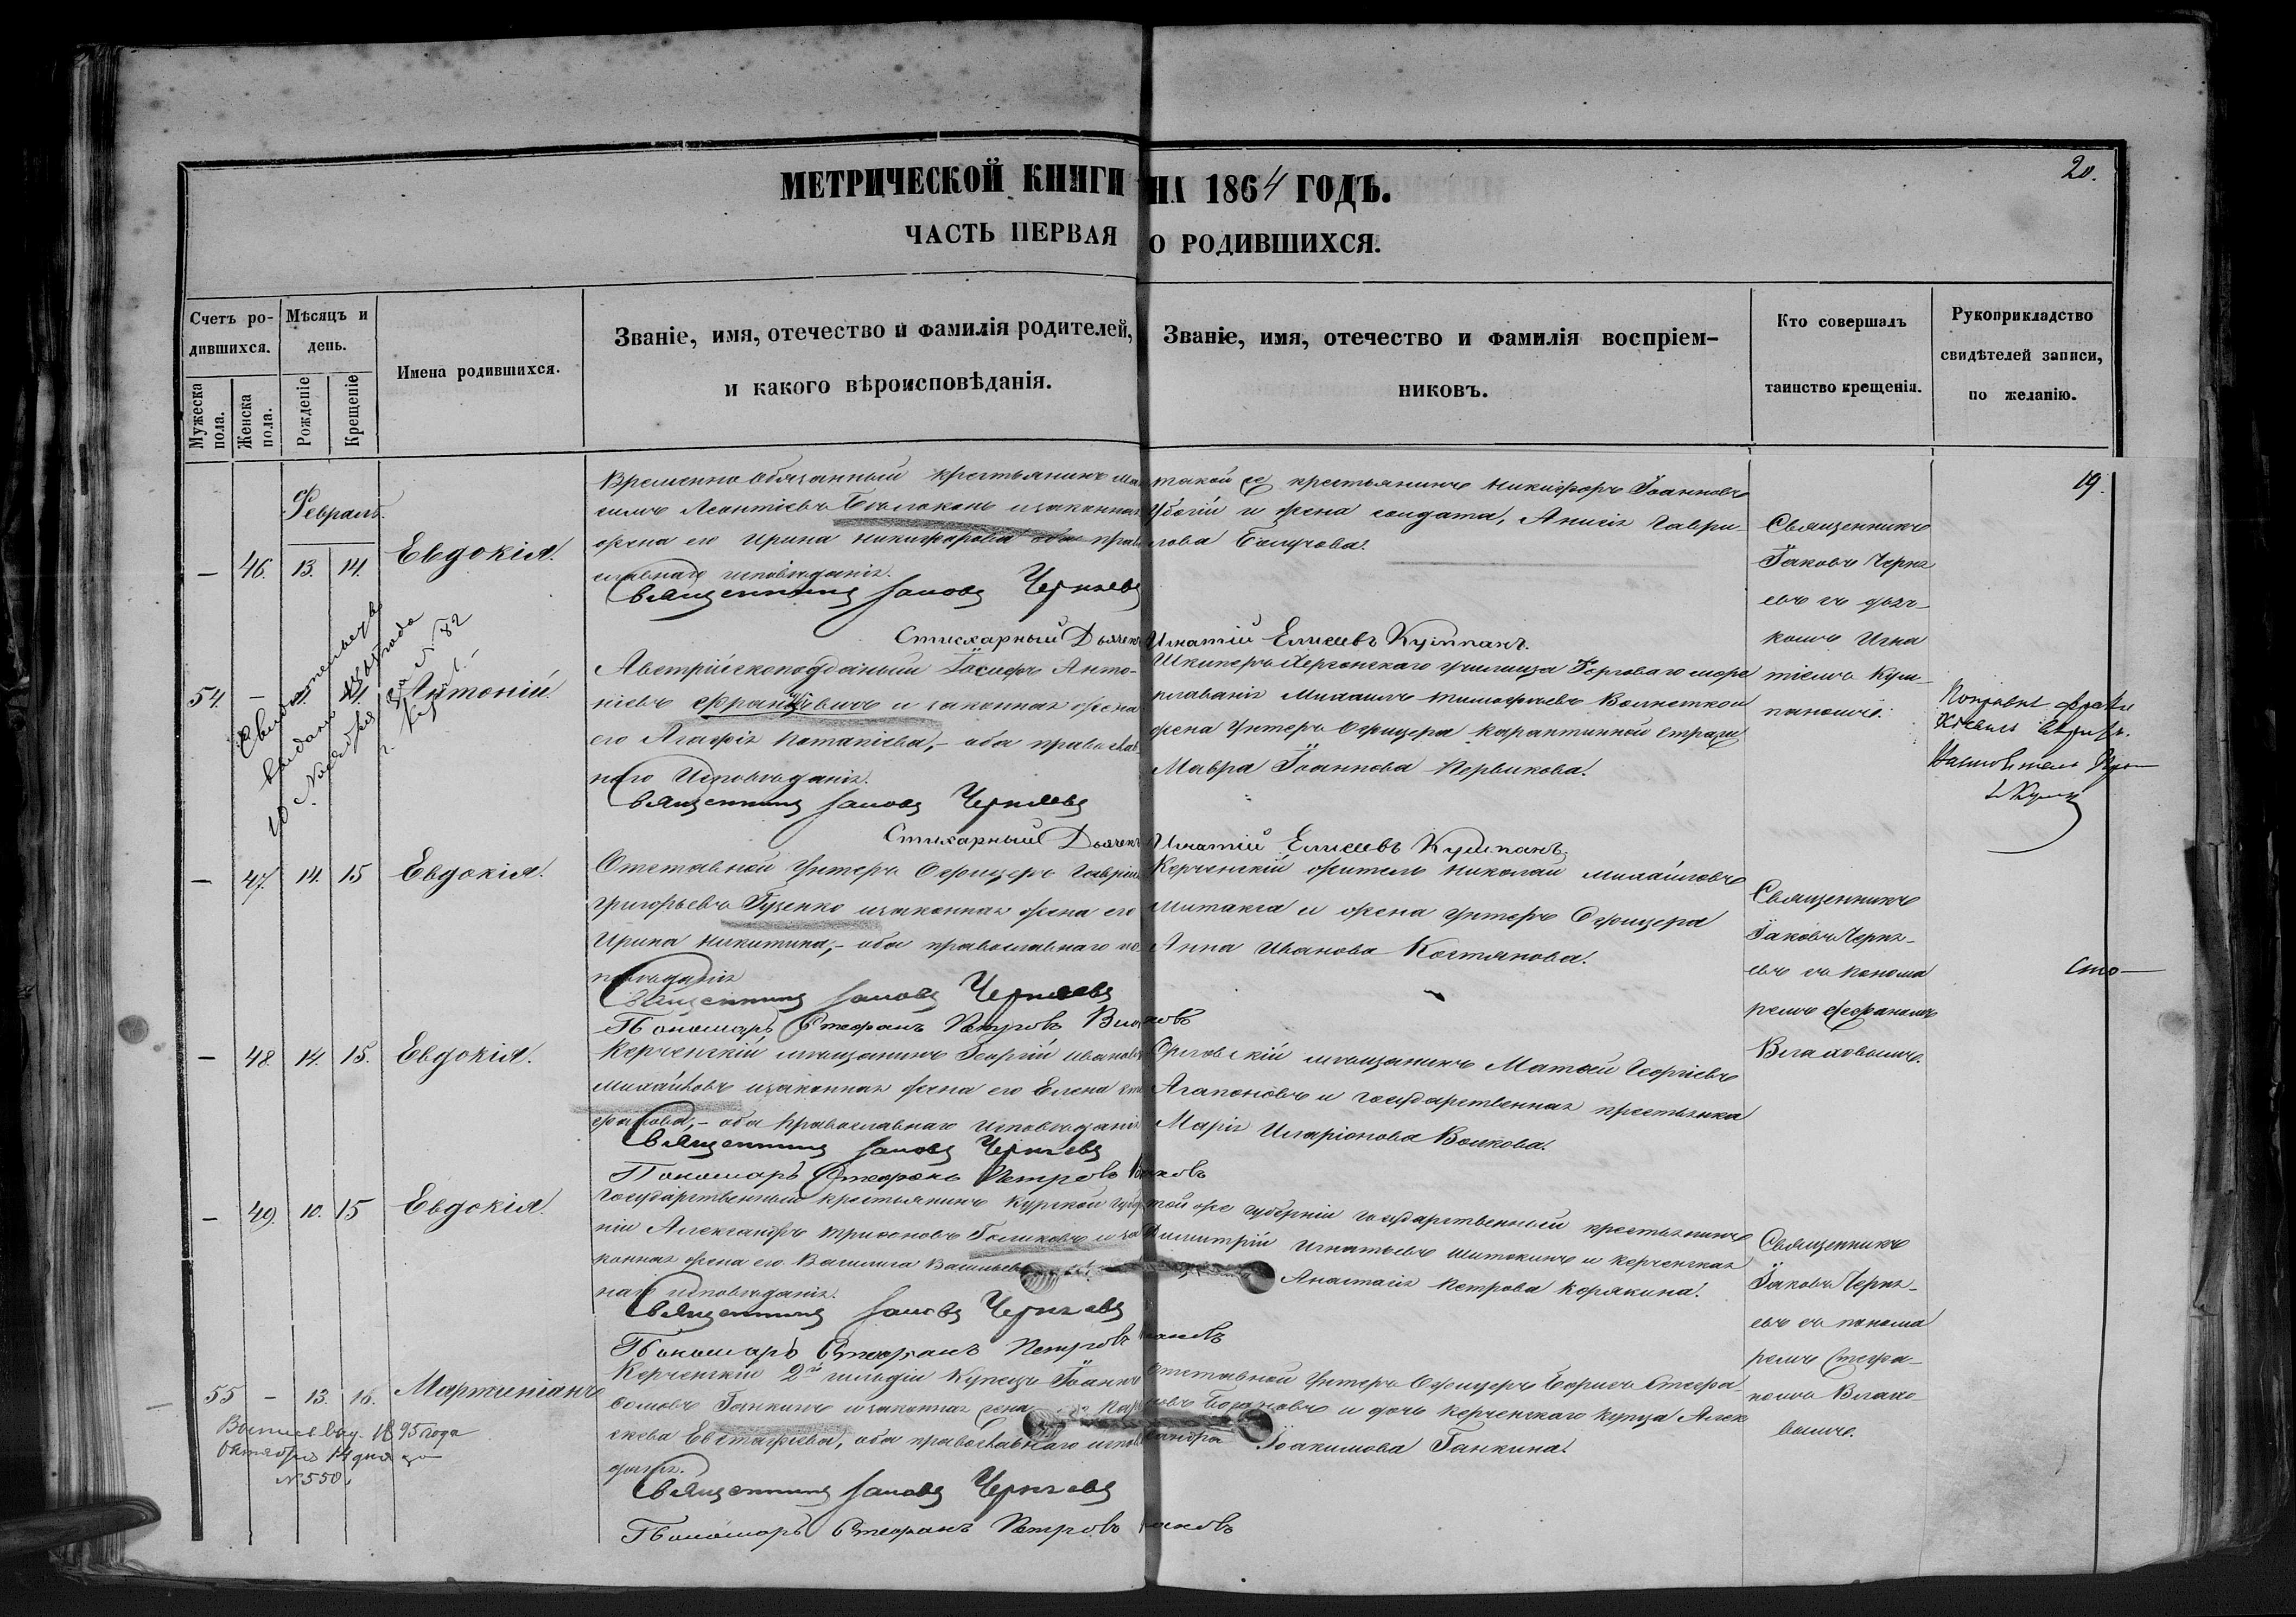 МЕТРИЧЕСКОЙ КНИГИ НА 1864 ГОДЪ.
20.
ЧАСТЬ ПЕРВАЯ О РОДИВШИХСЯ.
Счетъ ро-
дившихся.
Мужеска пола.
Женска пола.
Мѣсяцъ и
день.
Рожденіе
Крещеніе
Имена родившихся.
Званіе, имя, отечество и фамилія родителей,
и какого вѣроисповѣданія.
Званіе, имя, отечество и фамилія воспріем-
никовъ.
Кто совершалъ
таинство крещенія.
Рукоприкладство
свидѣтелей записи,
по желанію.
19.
Февраль.
— 46. 13. 14. Евдокія.
Временно обязанный крестьянинъ
Леонтіевъ законная
жена его Ирина Никифорова оба прав
славнаго исповѣданія.
Священникъ Іаковъ Черняевъ
такой же крестьянинъ Никифоръ Іоанновъ
Убогій и жена солдата, Анисія Гаври-
лова
Священникъ
Іаковъ Черня
евъ съ дьяч-
комъ Игна
тіемъ Куш-
паномъ.
Стихарный Дьячекъ Игнатій Елисеевъ Кушпанъ.
54. — Антоній.
Свидѣтельство
выдано
10 Ноября за N 82
Австрійскоподданный Іосифъ Анто-
ніевъ Францевичъ и законная жена
его Агафія Потапіева, — оба православ-
наго Исповѣданія.
Священникъ Іаковъ Черняевъ
Шкиперъ Херсонскаго училища Торговаго море
плаванія Михаилъ Тимофеевъ
жена Унтеръ Офицера Карантинной стражи
Мавра Іоаннова Первикова.
Стихарный Дьячекъ Игнатій Елисеевъ Кушпанъ.
— 47. 14. 15 Евдокія.
Отставной Унтеръ Офицеръ Гавріилъ
Григорьевъ Гузенко и законная жена его
Ирина Никитина, — оба православнаго ис-
повѣданія
Священникъ Іаковъ Черняевъ
Пономарь Стефанъ Петровъ
Керченскій житель Николай Михайловъ
Митакса и жена Унтеръ Офицера
Анна Иванова Костянова.
Священникъ
Іаковъ Черня-
евъ съ понома
ремъ Стефаномъ
Влаховымъ.
— 48. 14. 15. Евдокія.
Керченскій мѣщанинъ Георгій Ивановъ
Михайловъ и законная жена его Елена
фанова, — оба православнаго Исповѣданія
Священникъ Іаковъ Черняевъ
Пономарь Стефанъ Петровъ
мѣщанинъ Матвей Георгіевъ
Агапоновъ и государственная крестьянка
Марія Иларіонова Волкова.
— 49. 10. 15 Евдокія.
Государственный крестьянинъ Курской губер
ніи Александръ Трифоновъ Голиковъ и за
конная жена его Василиса Васильева
наго исповѣданія.
Священникъ Іаковъ Черняевъ
Пономарь Стефанъ Петровъ
той же губерніи государственный крестьянинъ
Димитрій Игнатьевъ Шитокинъ и керченская
Анастасія Петрова Корякина.
Священникъ
Іаковъ Черня-
евъ съ понома
ремъ Стефа-
номъ Влахо-
вымъ.
55 — 13. 16. Мартиніанъ
1895 года
Октября 14 дня за
N 550.
Керченскій 2й гильдіи Купецъ Іоаннъ
Ганкинъ и законная жена
Евстафіева, оба православнаго исповѣ
данія.
Священникъ Іаковъ Черняевъ
Пономарь Стефанъ Петровъ
Отставной Унтеръ Офицеръ Борисъ Стефа-
новъ и дочь керченскаго купца Алек
сандра Іоакимова Ганкина.